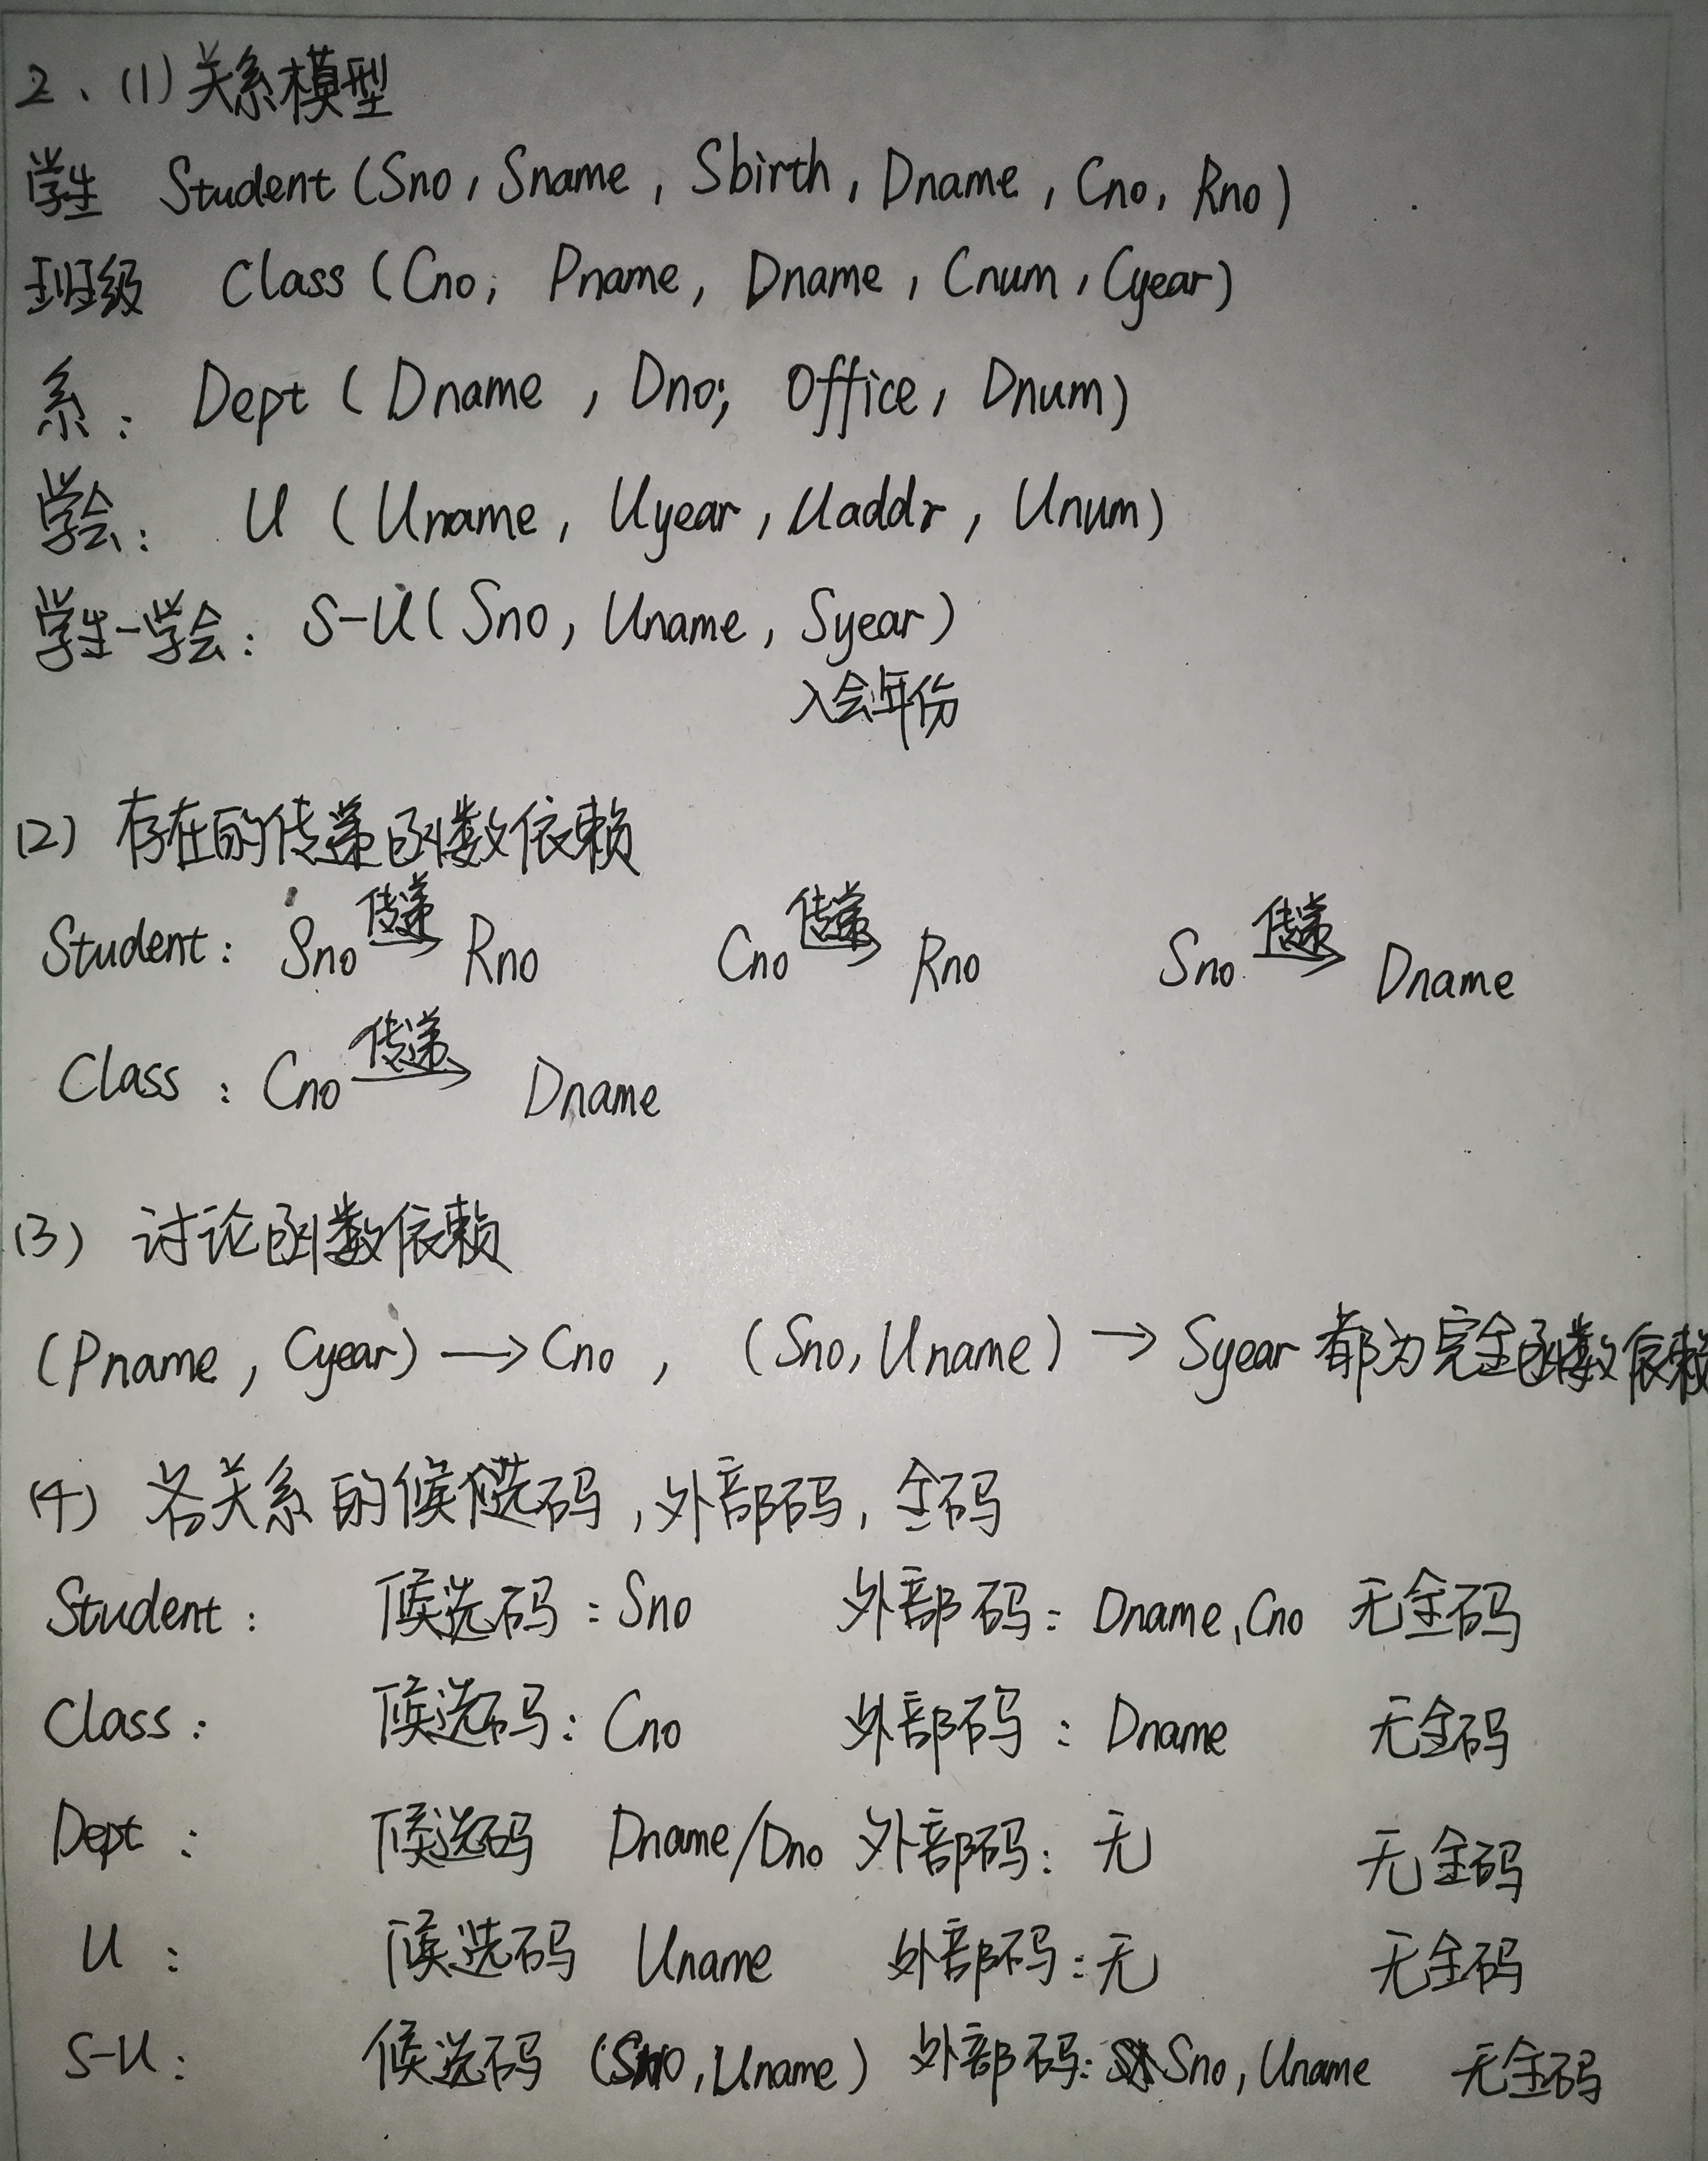 2、(1)关系模型
学生 Student(Sno, Sname, Sbirth, Dname, Cno, Rno)
班级 Class(Cno, Pname, Dname, Cnum, Cyear)
系: Dept(Dname, Dno, Office, Dnum)
学会: U(Uname, Uyear, Uaddr, Unum)
学生-学会: S-U(Sno, Uname, Syear)
入会年份
(2) 存在的传递函数依赖
Student: Sno 传递→ Rno Cno 传递→ Rno Sno 传递→ Dname
Class: Cno 传递→ Dname
(3) 讨论函数依赖
(Pname, Cyear)→Cno, (Sno, Uname)→Syear 都为完全函数依赖
(4) 各关系的候选码,外部码,全码
Student: 候选码:Sno 外部码: Dname, Cno 无全码
Class: 候选码: Cno 外部码: Dname 无全码
Dept: 候选码 Dname/Dno 外部码: 无 无全码
U: 候选码 Uname 外部码:无 无全码
S-U: 候选码 (Sno, Uname) 外部码: Sno, Uname 无全码